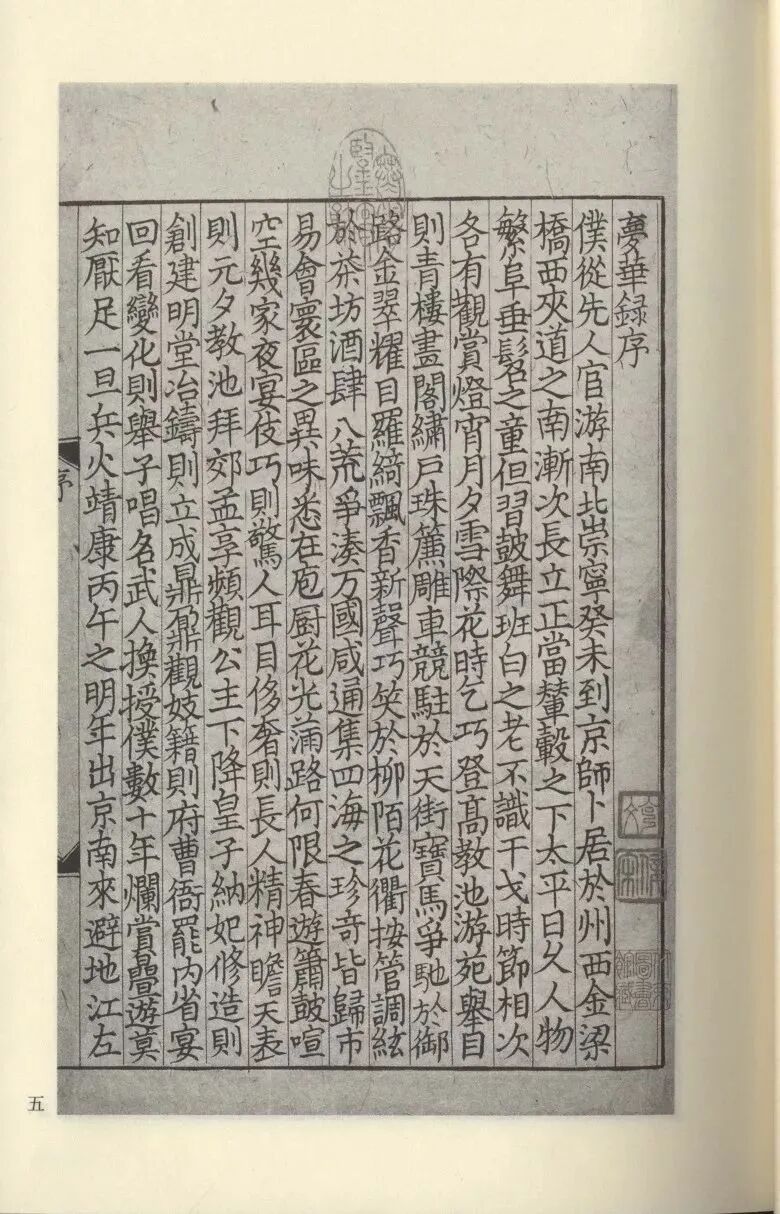 夢華録序
僕從先人宦游南北崇寧癸未到京師卜居於州西金梁
橋西夾道之南漸次長立正當輦轂之下太平日久人物
繁阜垂髫之童但習鼓舞班白之老不識干戈時節相次
各有觀賞燈宵月夕雪際花時乞巧登高教池游苑舉目
則青樓畫閣繡戶珠簾雕車競駐於天街寶馬爭馳於御
路金翠耀目羅綺飄香新聲巧笑於柳陌花衢按管調絃
於茶坊酒肆八荒爭湊万國咸通集四海之珍奇皆歸市
易會寰區之異味悉在庖厨花光滿路何限春遊簫鼓喧
空幾家夜宴伎巧則驚人耳目侈奢則長人精神瞻天表
則元夕教池拜郊孟享頻觀公主下降皇子納妃修造則
創建明堂冶鑄則立成鼎鼐觀妓籍則府曹衙罷内省宴
回看變化則舉子唱名武人換授僕數十年爛賞疊遊莫
知厭足一旦兵火靖康丙午之明年出京南來避地江左
序
五